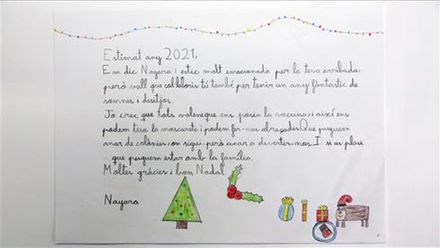 Estimat any 2021,
Em dic Nayara i estic molt emocionada per la teva arribada:
però vull que col·laboris tú també per tenir un any fantàstic de
somnis i disitjos.
Jo crec que tots volen que ens posin la vacuna: així ens
podem treure la mascareta i podem fer-nos abraçades. Que puguem
anar de colònies: on sigui: però anar a divertir-nos. I si us plau
que puguem estar amb la família.
Moltes gràcies i bon Nadal
Nayara